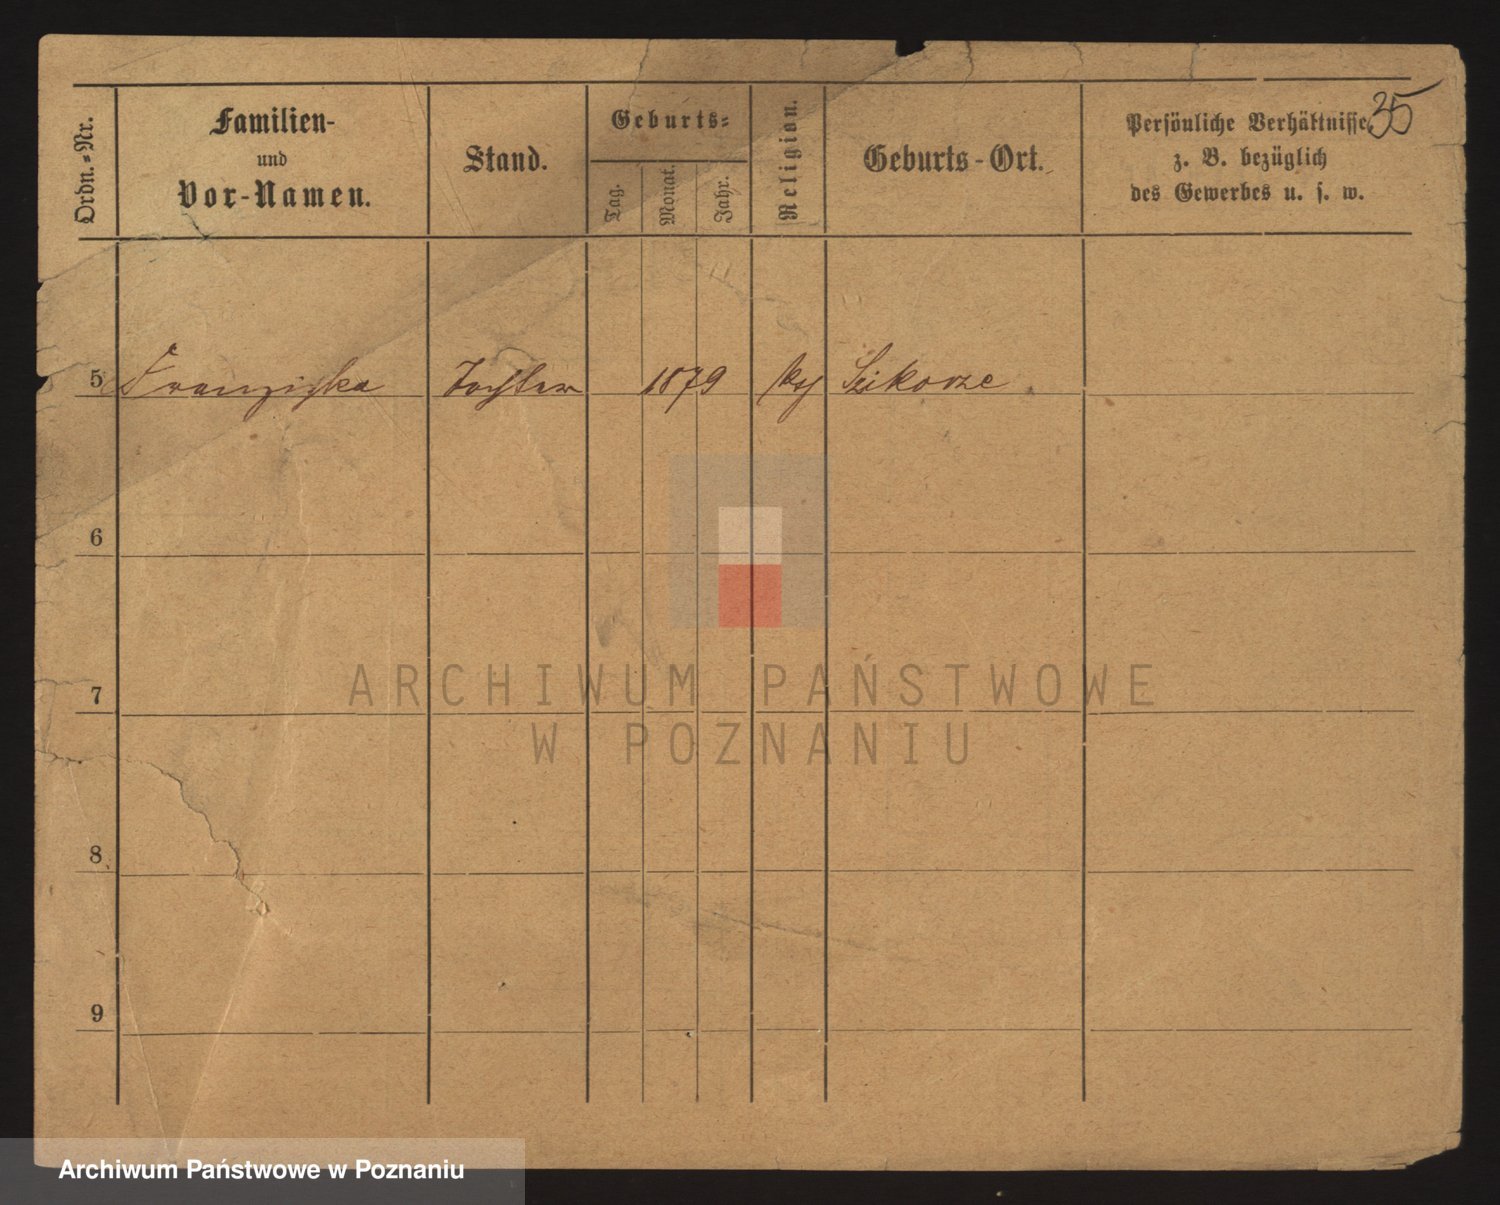 35
Ordn.=Nr.
Familien-
und
Vor-Namen.
Stand.
Geburts=
Tag.
Monat.
Jahr.
Religion.
Geburts-Ort.
Persönliche Verhältnisse
z. B. bezüglich
des Gewerbes u. s. w.
5 Franziska Tochter 1879 Szikorze
6
7
8
9
ARCHIWUM PAŃSTWOWE
W POZNANIU
Archiwum Państwowe w Poznaniu